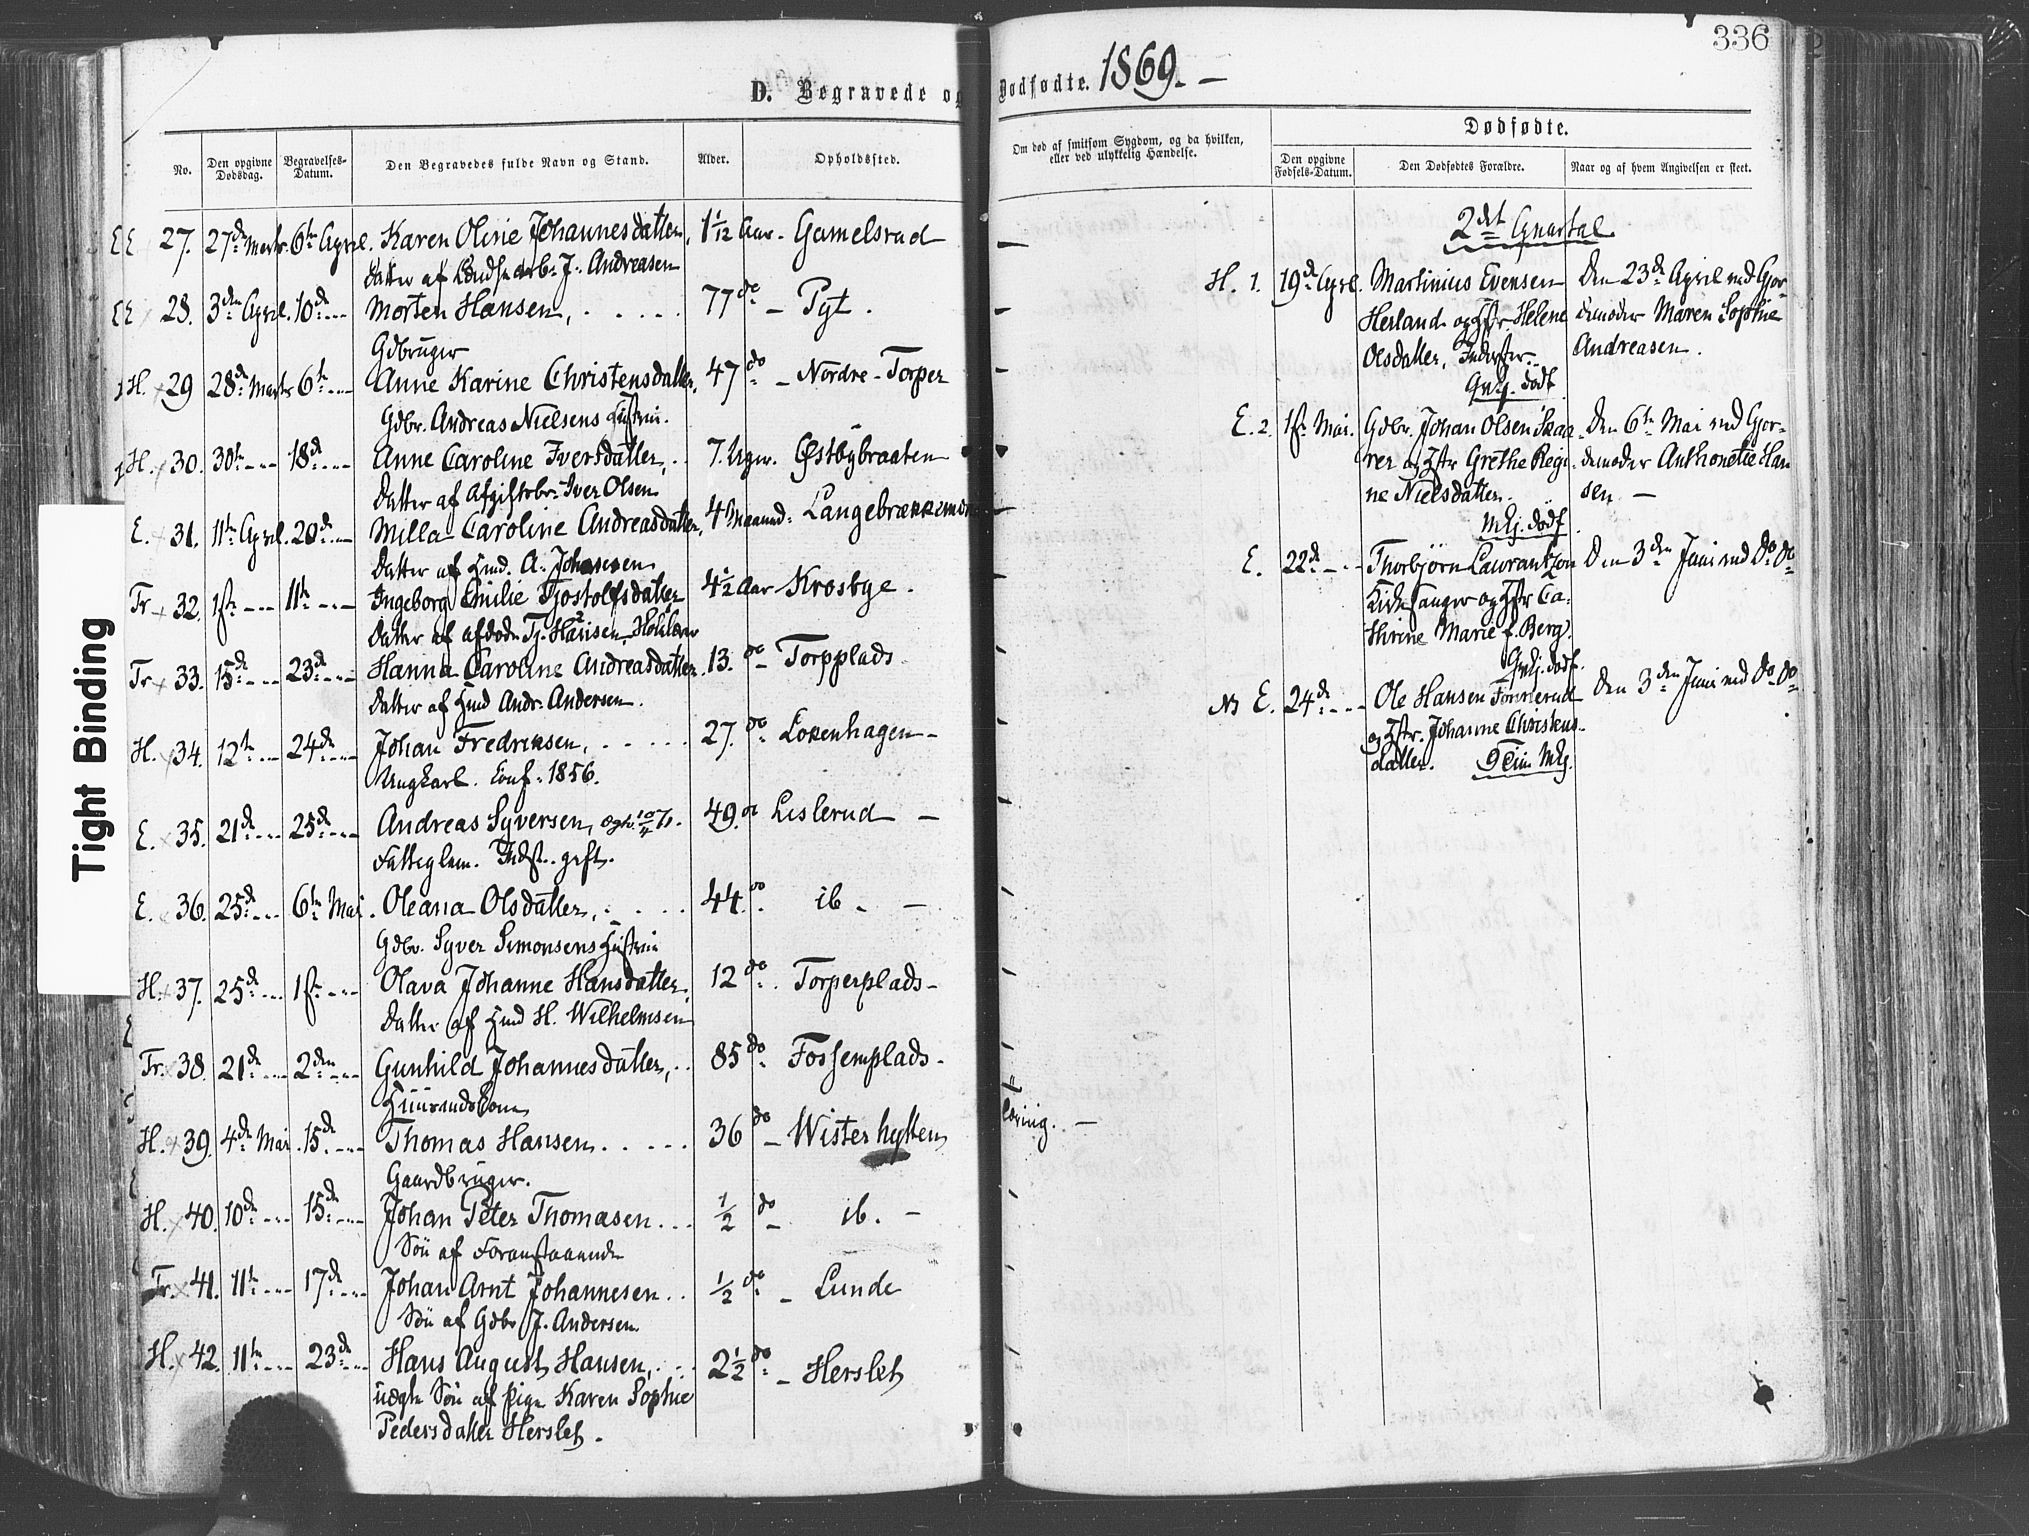 336
D. Begravede og Dødfødte. 1869. —
No.
Den opgivne Dødsdag.
Begravelses-Datum.
Den Begravedes fulde Navn og Stand.
Alder.
Opholdssted.
Om død af smitsom Sygdom, og da hvilken, eller ved ulykkelig Hændelse.
Dødfødte.
Den opgivne Fødsels-Datum.
Den Dødfødtes Forældre.
Naar og af hvem Angivelsen er skeet.
EE 27. 27de Marts. 6te April. Karen Oline Johannesdatter, 1 1/12 Aar - Gamelsrud
Datter af J. Andreasen
EE 28. 3die April. 10de Morten Hansen, 77 do - Pyt.
Gdbruger
H. 29 28de Marts 6te Anne Karine Christensdatter, 47 do - Nordre-Torper
Gdbr. Andreas Nielsens Hustru.
H. 30. 30te 18de Anne Caroline Iversdatter, 7. Ugr. Østbybraaten
Datter af Afgiftsbr. Iver Olsen
E. 31. 11te April. 20de Milla Caroline Andreasdatter, 4 Maaned:
Datter af Hmd. A. Johansen
Tr 32. 1ste 11te Ingeborg Emilie Tjostolfsdatter 4 1/2 Aar Krosbye.
Datter af afdøde Tj. Hansen,
Tr 33. 15de 23de Hanna Caroline Andreasdatter. 13. do - Torpplads
Datter af Hmd Andr. Andersen.
H. 34. 12te 24de Johan Fredriksen, 27. do Lokenhagen -
Ungkarl. Conf. 1856.
E. 35. 21de 25de Andreas Syversen, 49. do Lislerud —
Fatteglem. Indst. gift.
E. 36. 25de 6te Mai. Oleana Olsdatter, 44. do ib. —
Gdbr. Syver Simonsens Hustru
H. 37. 25de 1ste Olava Johanne Hansdatter, 12 do. Torperplads -
Datter af Hmd H. Wilhelmsen
Tr. 38. 21de 2den Gunhild Johannesdatter, 85 do Fossemplads -
Huusmandskone
H. 39. 4de Mai. 15de Thomas Hansen. 36 do - Wisterhytten
Gaardbruger.
H. 40. 10de 15de Johan Peter Thomasen 1/2 do - ib. -
Søn af Foranstaaende
Tr. 41. 11te 17de Johan Arnt Johannesen 1/2 do - Lunde
Søn af Gdbr J. Andersen
H. 42. 11te 23de Hans August Hansen, 2 1/2 do - Herslet
uægte Søn af Pige Karen Sophie
Pedersdatter Herslet.
2det Qvartal
H. 1. 19de April. Martinius Evensen Den 23de April ved Gjor-
Herland og Hstr. Helene demoder Maren Sophie
Olsdatter, Inderster. Andreasen.
Gnkj. dødf
E. 2. 1ste Mai. Gdbr. Johan Olsen Skaa- Den 6te Mai ved Gjor-
rer og Hstr Grethe Regi- demoder Anthonette Han
ne Nielsdatter. sen. —
Mkj. dødf.
E. 22de Thorbjørn Laurantzon Den 3den Juni ved Do Do
Kirkesanger og Hstr Ca-
thrine Marie f. Berg.
Gnkj. dødf.
E. 24de Ole Hansen Fonnerud Den 3den Juni ved Do Do
og Hstr. Johanne Christens-
datter. Mkj.
Tight Binding